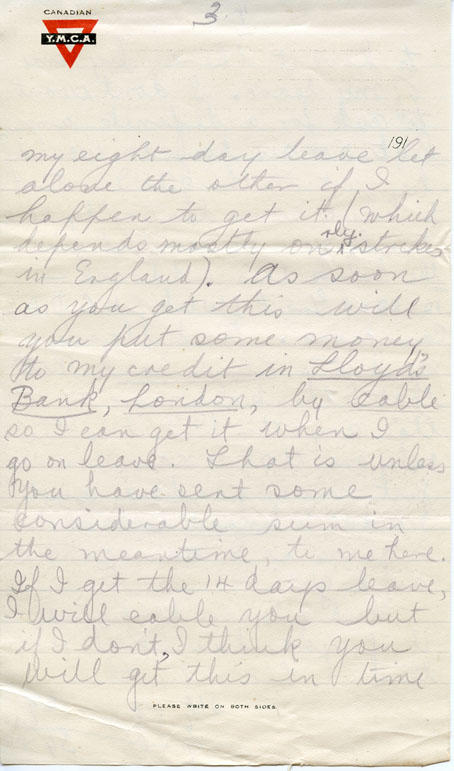 CANADIAN
Y.M.C.A.
3
191
my eight day leave let
alone the other if I
happen to get it. (which
depends mostly on rly. strikes
in England). As soon
as you get this will
you put some money
to my credit in Lloyd's
Bank, London, by cable
so I can get it when I
go on leave. That is unless
you have sent some
considerable sum in
the meantime, to me here.
If I get the 14 days leave,
I will cable you but
if I don't, I think you
will get this in time
PLEASE WRITE ON BOTH SIDES